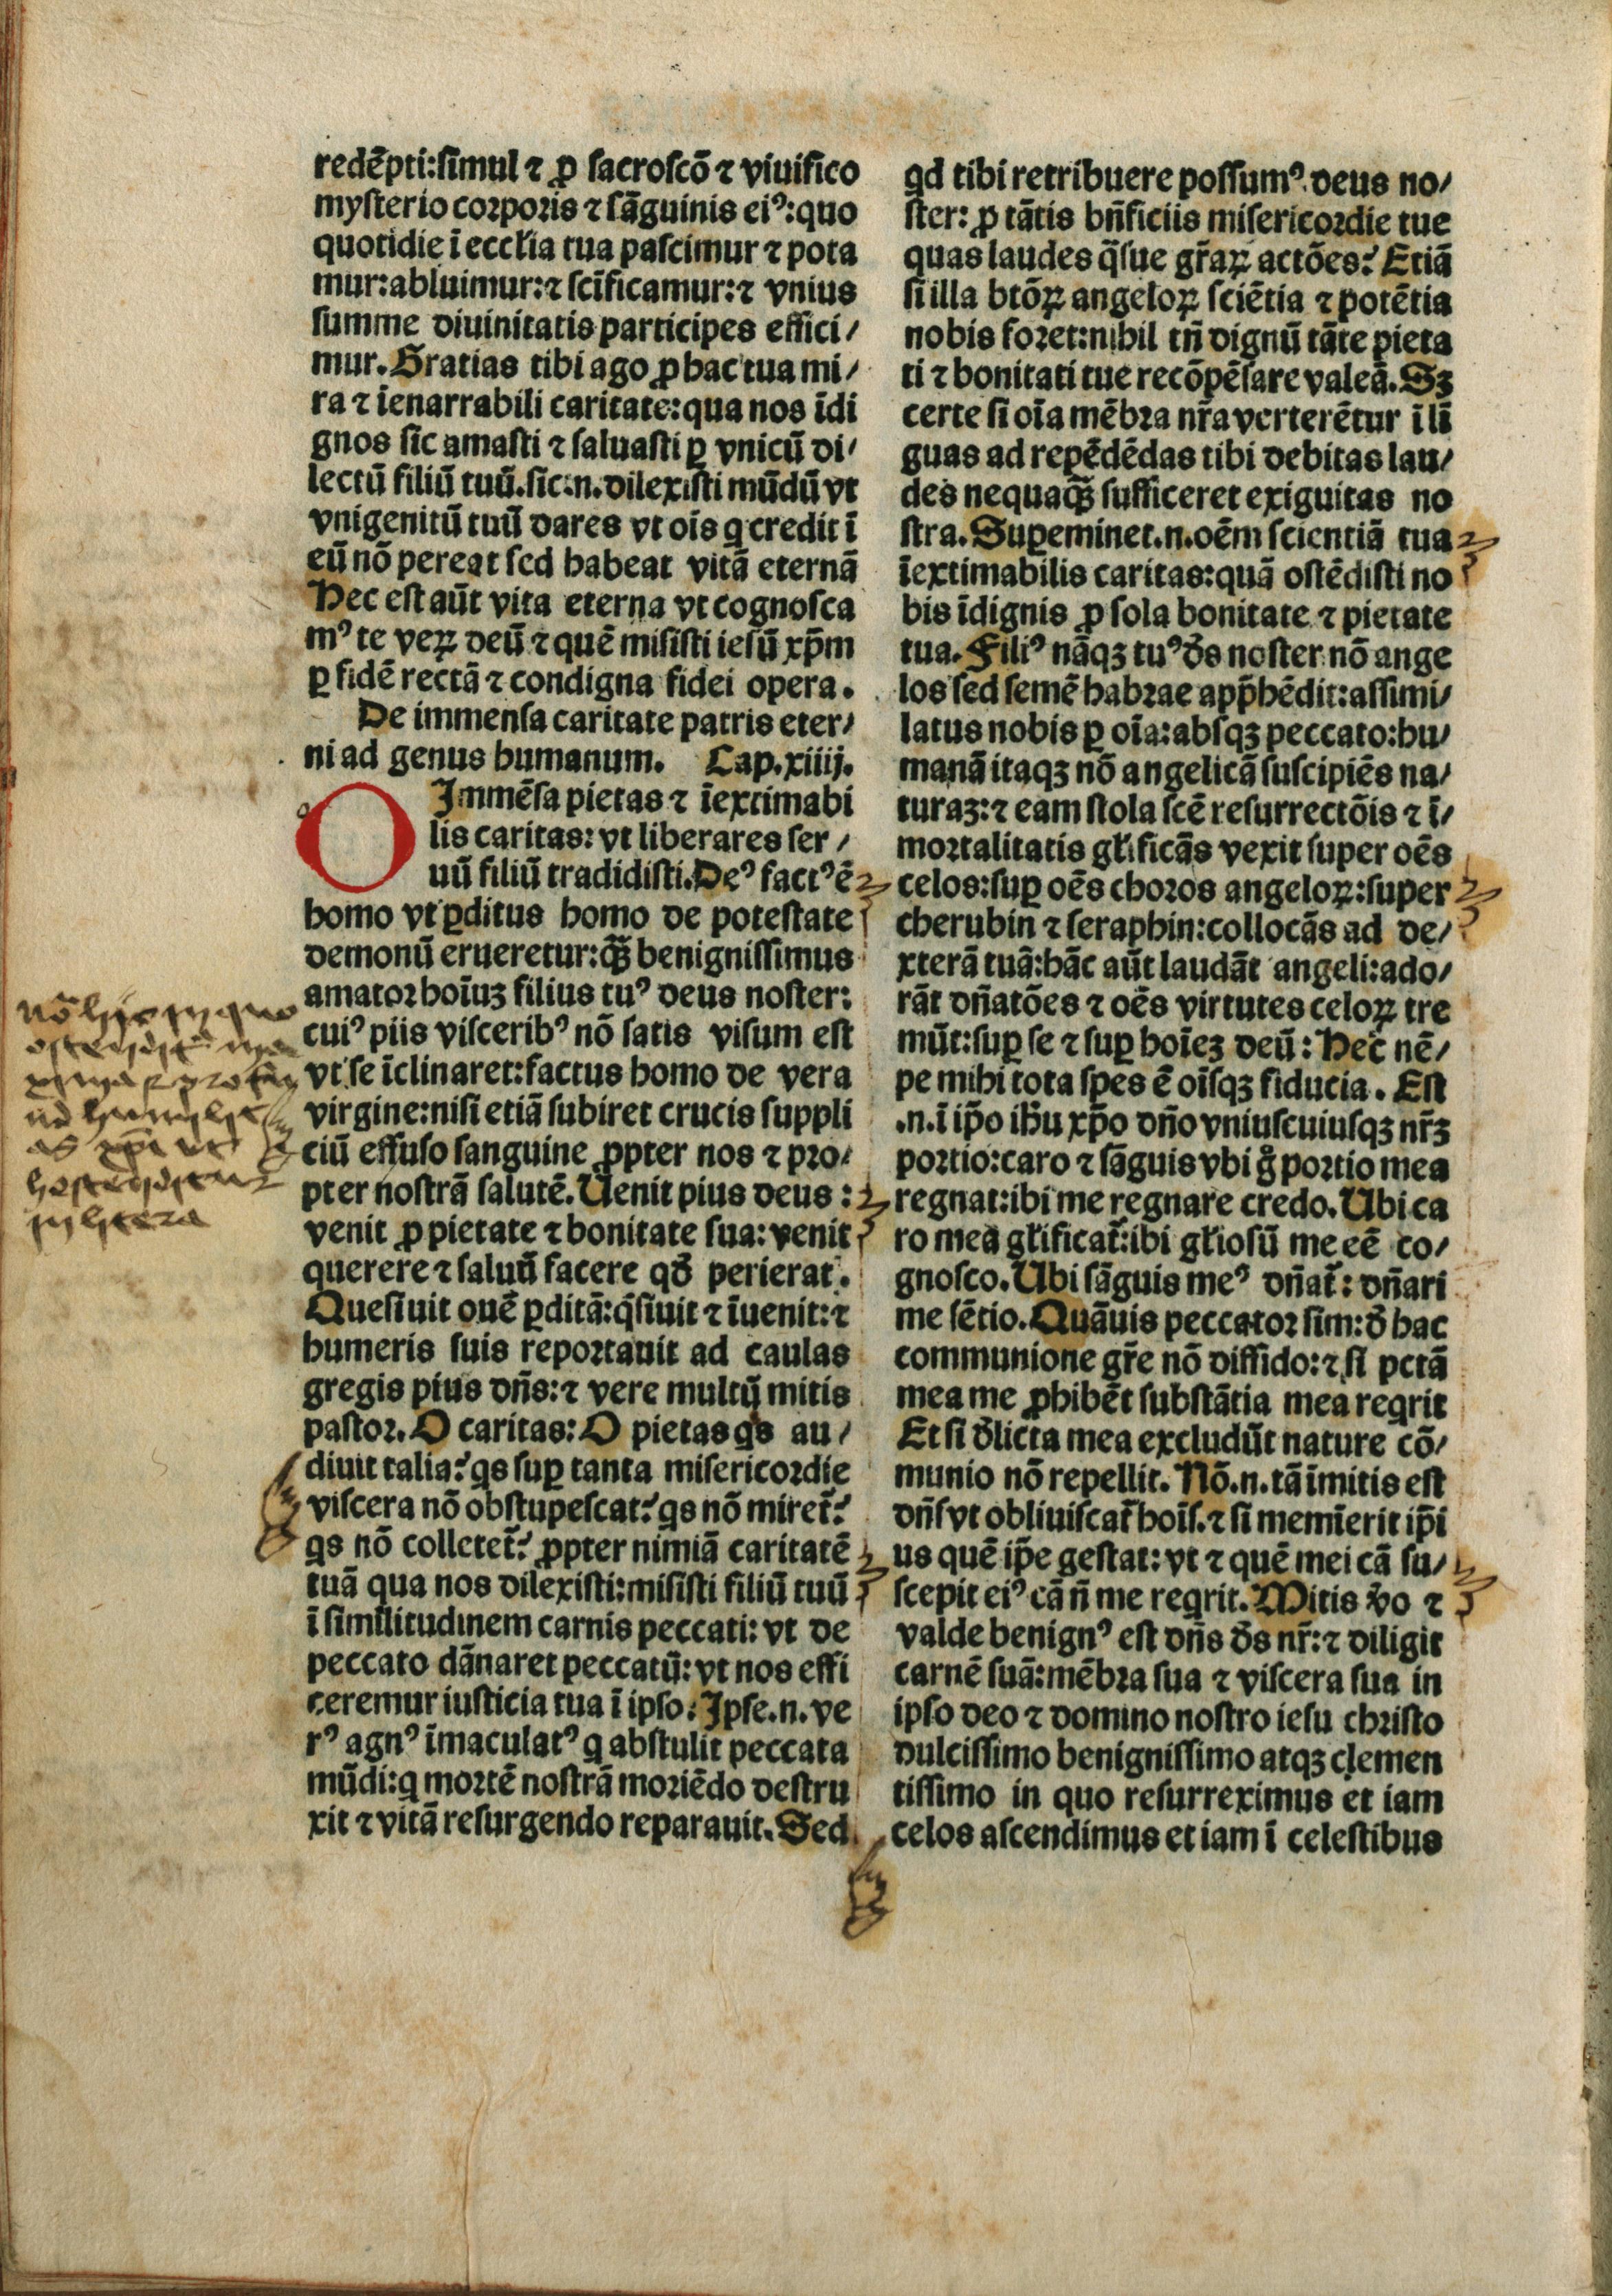 redēpti:ſimul ⁊ ꝓ ſacroſcō ⁊ viuifico
myſterio corꝑoris ⁊ ſāguinis eiꝰ:quo
quotidie ī eccłia tua paſcimur ⁊ pota
mur:abluimur:⁊ ſcīficamur:⁊ vnius
ſumme diuinitatis participes effici/
mur. Gratias tibi ago ꝓ hac tua mi/
ra ⁊ īenarrabili caritate:qua nos īdi
gnos ſic amaſti ⁊ ſaluaſti ꝑ vnicū di/
lectū filiū tuū.ſic.n.dilexiſti mūdū vt
vnigenitū tuū dares vt oīs q credit ī
eū nō pereat ſed habeat vitā eternā
Hec eſt aūt vita eterna vt cognoſca
mꝰ te veꝝ deū ⁊ quē miſiſti ieſū xp̄m
ꝑ fidē rectā ⁊ condigna fidei opera.
De immenſa caritate patris eter/
ni ad genus humanum. Cap.xiiij.
O Immēſa pietas ⁊ īextimabi
lis caritas: vt liberares ſer/
uū filiū tradidiſti.Deꝰ factꝰ ē
homo vt ꝑditus homo de poteſtate
demonū erueretur:qꝫ̄ benigniſſimus
amator hoīuꝫ filius tuꝰ deus noſter:
cuiꝰ piis viſceribꝰ nō ſatis viſum eſt
vt ſe īclinaret:factus homo de vera
virgine:niſi etiā ſubiret crucis ſuppli
ciū effuſo ſanguine ꝓpter nos ⁊ pro/
pter noſtrā ſalutē. Uenit pius deus:
venit ꝓ pietate ⁊ bonitate ſua: venit
querere ⁊ ſaluū facere qđ perierat.
Queſiuit ouē ꝑditā:q̄ſiuit ⁊ īuenit:⁊
humeris ſuis reportauit ad caulas
gregis pius dn̄s:⁊ vere multū mitis
paſtor. O caritas: O pietas qs au/
diuit talia? qs ſuꝑ tanta miſericordie
viſcera nō obſtupeſcat? qs nō miret̄?
qs nō colletet̄? ꝓpter nimiā caritatē
tuā qua nos dilexiſti:miſiſti filiū tuū
ī ſimilitudinem carnis peccati: vt de
peccato dānaret peccatū: vt nos effi
ceremur iuſticia tua ī ipſo: Ipſe.n.ve
rꝰ agnꝰ īmaculatꝰ q abſtulit peccata
mūdi:q mortē noſtrā moriēdo deſtru
xit ⁊ vitā reſurgendo reparauit. Sed
qd tibi retribuere poſſumꝰ deus no/
ſter: ꝓ tātis bn̄ficiis miſericordie tue
quas laudes q̄ſue gr̄aꝝ actōes? Etiā
ſi illa btōꝝ angeloꝝ ſciētia ⁊ potētia
nobis foret:nihil tn̄ dignū tāte pieta
ti ⁊ bonitati tue recōpēſare valeā. Sꝫ
certe ſi oīa mēbra nr̄a verterētur ī lī
guas ad repēdēdas tibi debitas lau/
des nequaqꝫ̄ ſufficeret exiguitas no
ſtra. Suꝑeminet.n.oēm ſcientiā tua
īextimabilis caritas:quā oſtēdiſti no
bis īdignis ꝓ ſola bonitate ⁊ pietate
tua. Filiꝰ nāqꝫ tuꝰ ds̄ noſter nō ange
los ſed ſemē habrae app̄hēdit:aſſimi/
latus nobis ꝑ oīa:abſqꝫ peccato:hu/
manā itaqꝫ nō angelicā ſuſcipiēs na/
turaꝫ:⁊ eam ſtola ſcē reſurrectōis ⁊ ī/
mortalitatis gl̄ificās vexit ſuper oēs
celos:ſuꝑ oēs choros angeloꝝ:ſuper
cherubin ⁊ ſeraphin:collocās ad de/
xterā tuā:hāc aūt laudāt angeli:ado/
rāt dn̄atōes ⁊ oēs virtutes celoꝝ tre
mūt:ſuꝑ ſe ⁊ ſuꝑ hoīeꝫ deū: Hec nē/
pe mihi tota ſpes ē oīſqꝫ fiducia. Eſt
.n.ī ip̄o ih̄u xp̄o dn̄o vniuſcuiuſqꝫ nr̄ꝫ
portio:caro ⁊ ſāguis vbi g̊ portio mea
regnat:ibi me regnare credo. Ubi ca
ro mea gl̄ificat̄:ibi gl̄ioſū me eē co/
gnoſco. Ubi ſāguis meꝰ dn̄at̄: dn̄ari
me ſētio. Quāuis peccator ſim:đ hac
communione gr̄e nō diffido:⁊ ſi pctā
mea me ꝓhibēt ſubſtātia mea reqrit
Et ſi đlicta mea excludūt nature cō/
munio nō repellit. Nō.n.tā īmitis eſt
dn̄ſ vt obliuiſcat̄ hoīſ.⁊ ſi memīerit ip̄i
us quē ip̄e geſtat: vt ⁊ quē mei cā ſu/
ſcepit eiꝰ cā n̄ me reqrit. Mitis v̊o ⁊
valde benignꝰ eſt dn̄s ds̄ nr̄:⁊ diligit
carnē ſuā:mēbra ſua ⁊ viſcera ſua in
ipſo deo ⁊ domino noſtro ieſu chriſto
dulciſſimo benigniſſimo atqꝫ clemen
tiſſimo in quo reſurreximus et iam
celos aſcendimus et iam ī celeſtibus
nō hic in quo